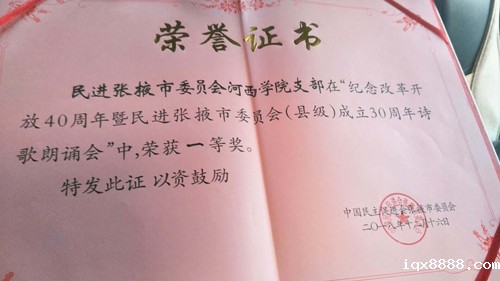 荣誉证书
民进张掖市委员会河西学院支部在“纪念改革开
放40周年暨民进张掖市委员会(县级)成立30周年诗
歌朗诵会”中,荣获一等奖。
特发此证 以资鼓励
中国民主促进会张掖市委员会
二〇一八年十二月十六日
iqx8888.com